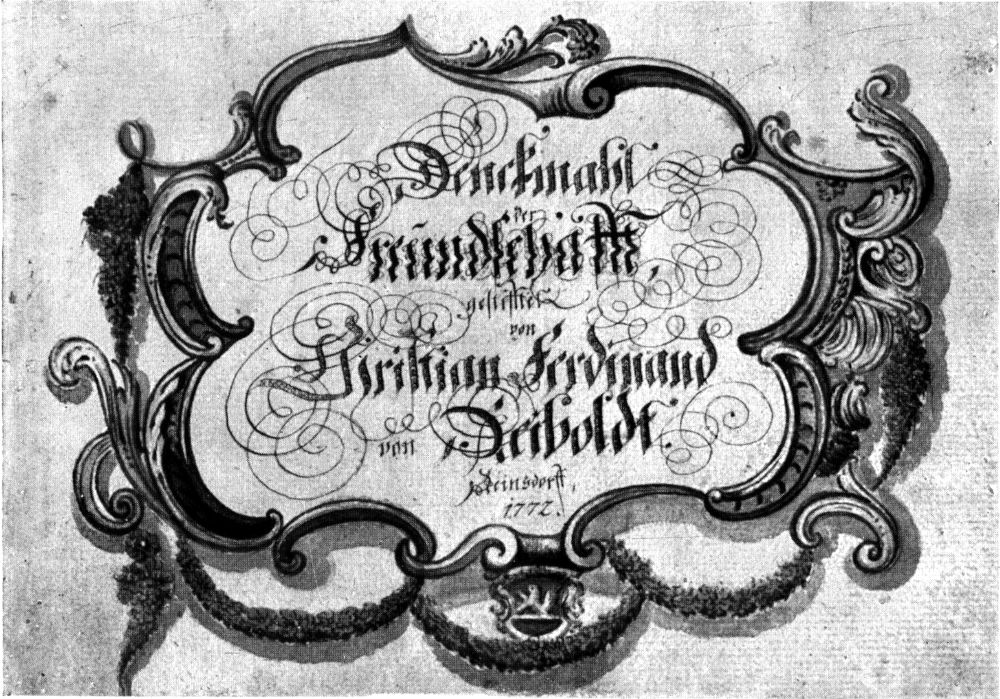 Denckmahl
der
Freündschafft
gestifftet
von
Christian Ferdinand
von Reiboldt.
Reinsdorff,
1772.